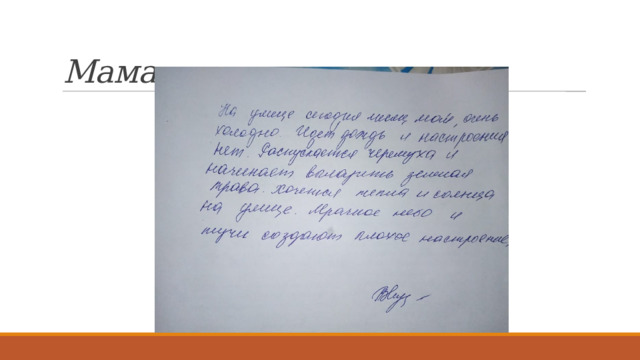 Мама
На улице сегодня месяц май, очень
холодно. Идет дождь и настроения
нет. Распускается черемуха и
начинает вылазить зеленая
трава. Хочется тепла и солнца
на улице. Мрачное небо и
тучи создают плохое настроение,